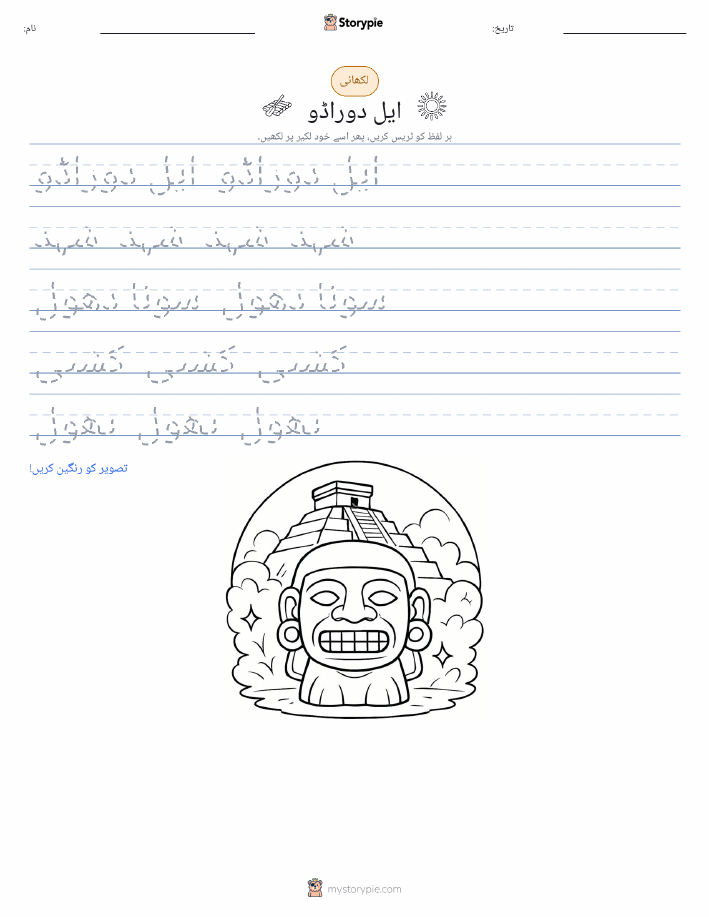 نام:
Storypie
تاریخ:
لکھائی
ایل دوراڈو
ہر لفظ کو ٹریس کریں، پھر اسے خود لکیر پر لکھیں۔
ایل دوراڈو ایل دوراڈو
شہد شہد شہد شہد
سونا دھول سونا دھول
کشتی کشتی کشتی
پھول پھول پھول
تصویر کو رنگین کریں!
mystorypie.com